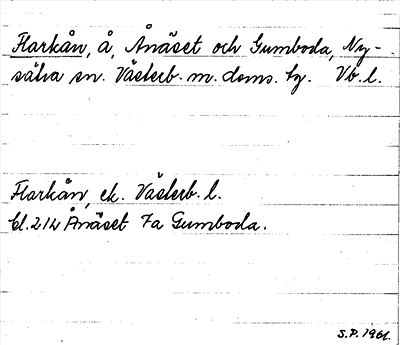 Flarkån, å, Ånäset och Gumboda, Ny-
sätra sn. Västerb. m. doms. hg. Vb. l.
Flarkån, ek. Västerb. l.
bl. 214 Ånäset Fa Gumboda.
S.P. 1961.